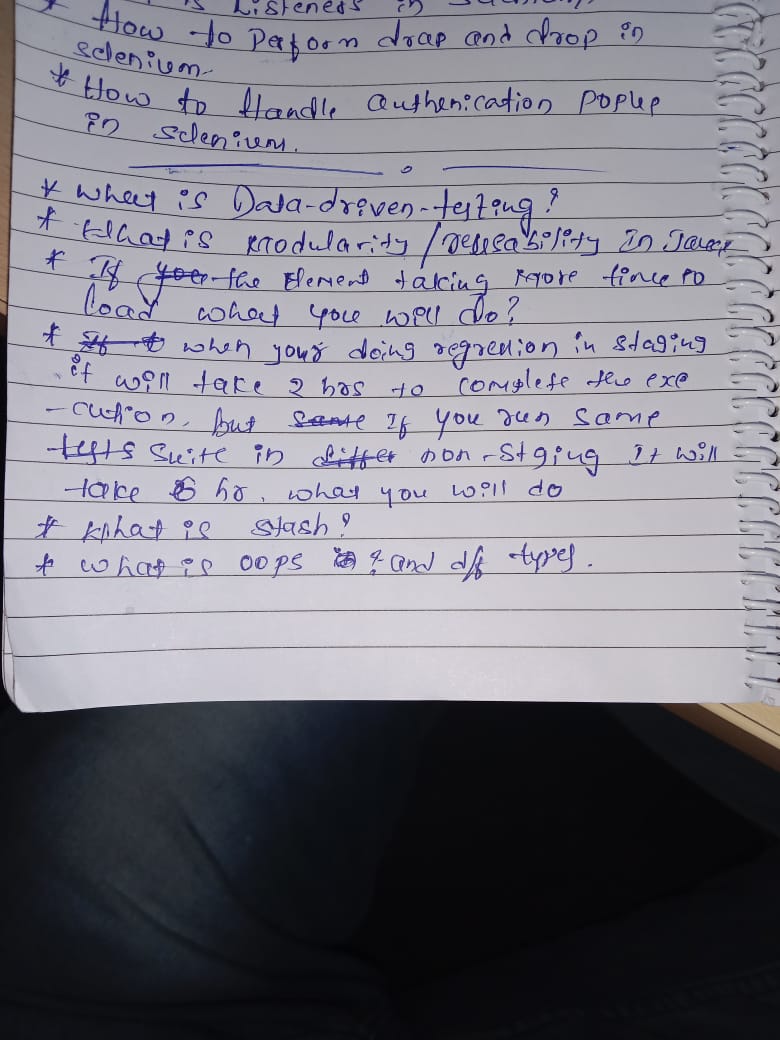 is Listeners in
* How to Perform drap and drop in
selenium.
* How to Handle authenication Popup
in selenium.
* What is Data-driven-testing?
* What is modularity/reusability In Java
* If the Element taking more time to
load what you will do?
* when your doing regression in staging
it will take 2 hrs to complete the exe
-cution, but If you run same
Suite in non-stging It will
take 6 hr. what you will do
* What is stash?
* What is OOPS ? and d/f types.